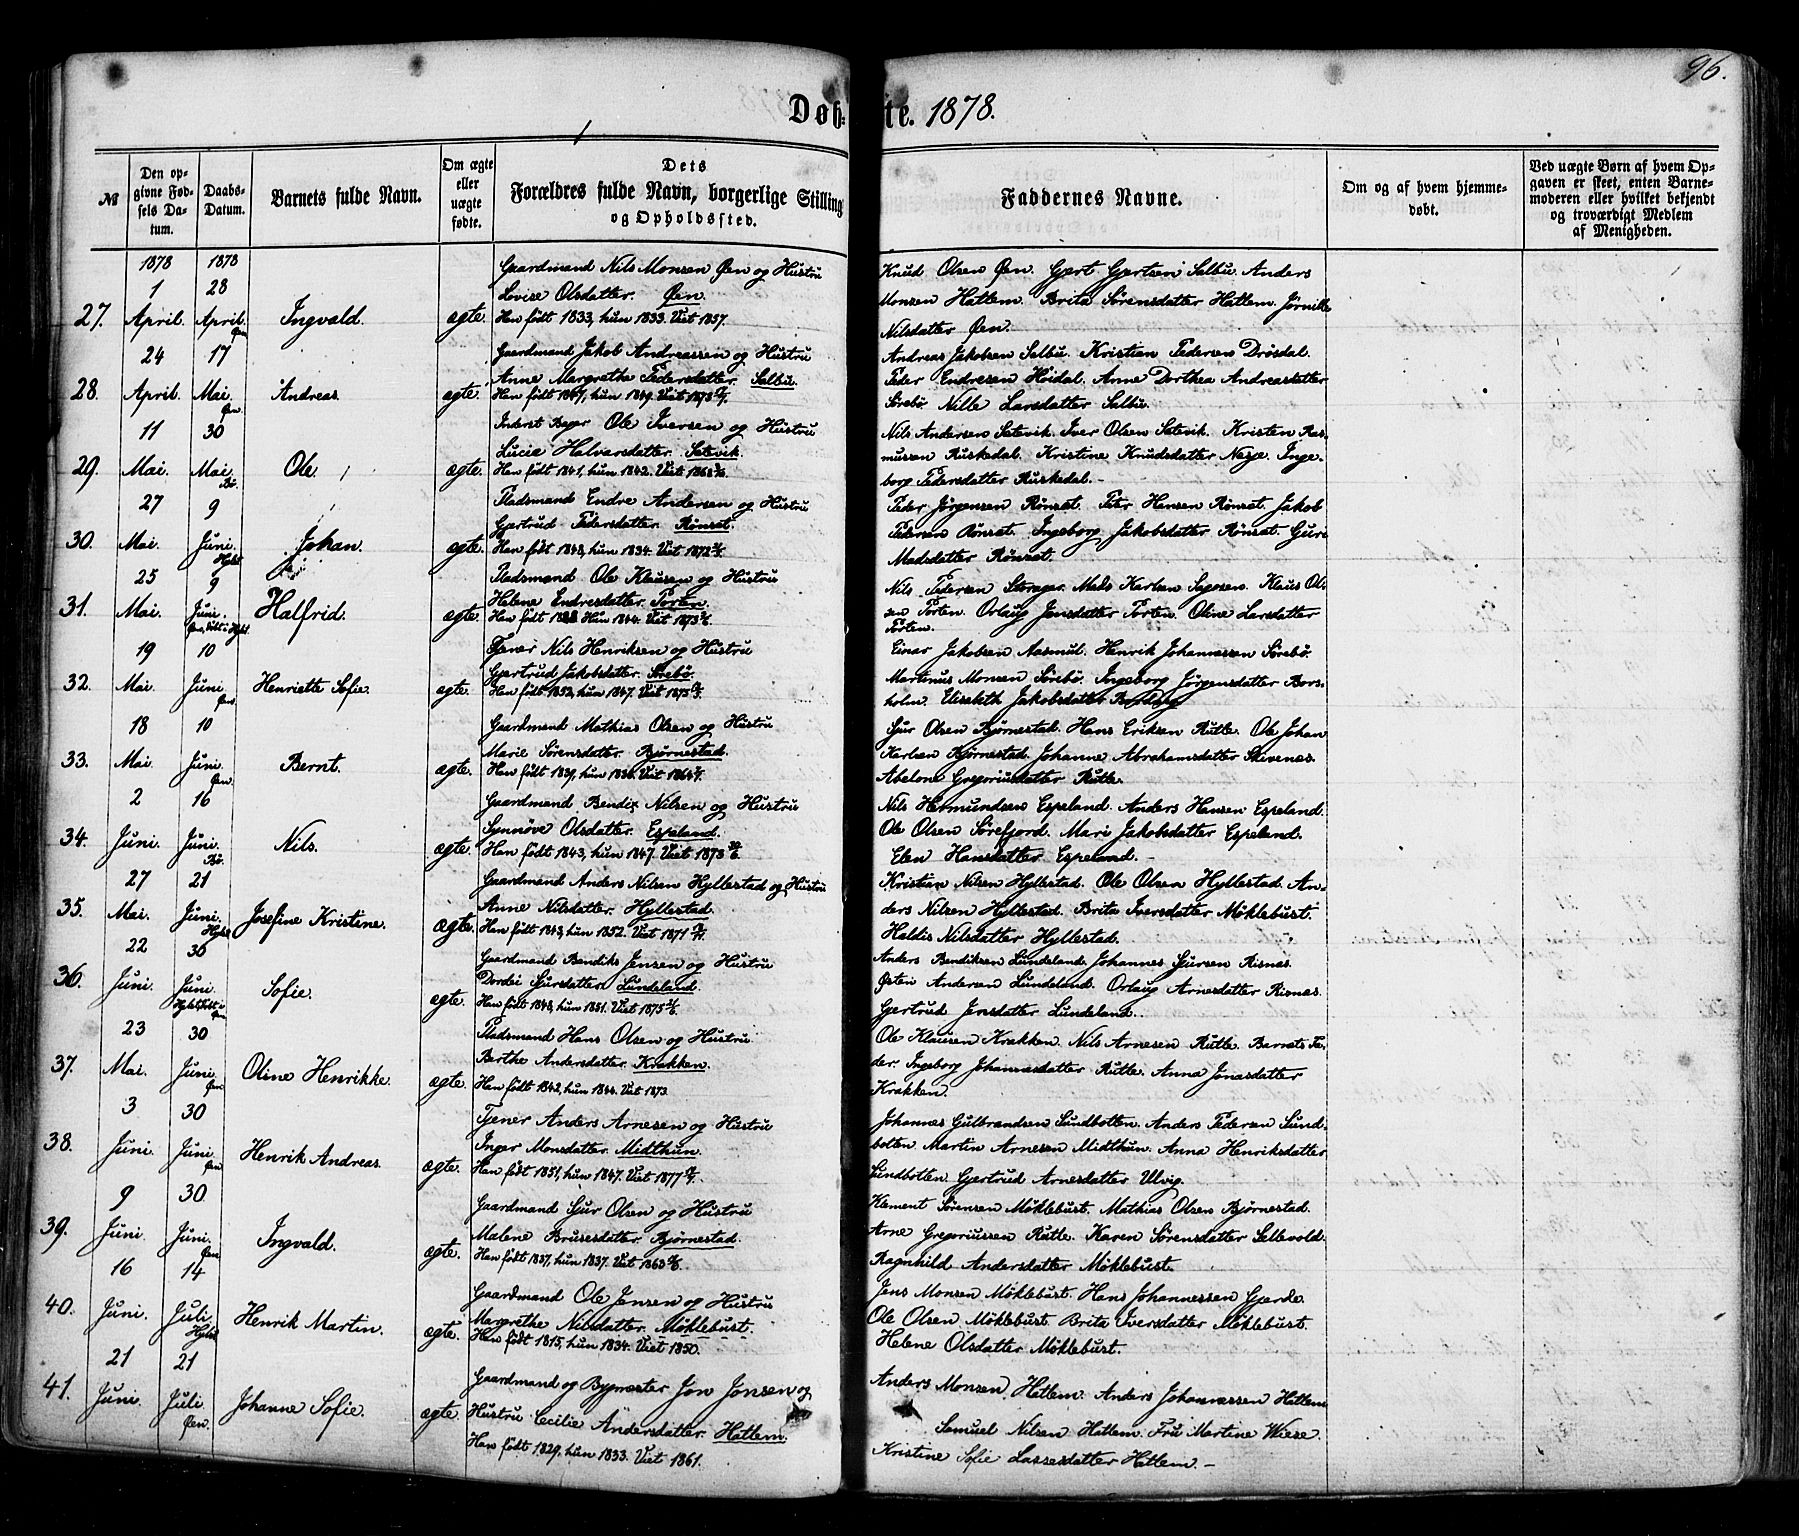 96.
Døb- te. 1878.
№
Den opgivne Fødsels Datum.
Daabs-Datum.
Barnets fulde Navn.
Om ægte eller uægte fødte.
Dets Forældres fulde Navn, borgerlige Stilling og Opholdssted.
Faddernes Navne.
Om og af hvem hjemmedøbt.
Ved uægte Børn af hvem Opgaven er skeet, enten Barnemoderen eller hvilket bekjendt og troværdigt Medlem af Menigheden.
1878 1878
27. 1 April. 28 April. Øen Ingvald. ægte.
Gaardmand Nils Monsen Øen og Hustru
Lovise Olsdatter. Øen.
Han født 1833, hun 1833. Viet 1857.
Knud Olsen Øen. Gjert Gjertsen Salbu. Anders
Monsen Hatlem. Brita Sørensdatter Hatlem. Jørnike
Nilsdatter Øen.
28. 24 April. 17 Mai. Øen. Andreas. ægte.
Gaardmand Jakob Andreassen og Hustru
Anne Margrethe Pedersdatter. Salbu.
Han født 1847, hun 1849. Viet 1873
Andreas Jakobsen Salbu. Kristian Pedersen Drøsdal.
Peder Endresen Høidal. Anne Dorthea Andreasdatter
Sørebø. Nille Larsdatter Salbu.
29. 11 Mai. 30 Mai. Bø. Ole. ægte.
Inderst Bager Ole Iversen og Hustru
Lucie Halvarsdatter. Satevik.
Han født 1841, hun 1842. Viet 1868
Nils Andersen Satevik. Iver Olsen Satevik. Kristen Ras-
mussen Ruskedal. Kristine Knudsdatter Nese. Inge-
borg Pedersdatter Ruskedal.
30. 27 Mai. 9 Juni. Hylst. Johan. ægte.
Pladsmand Endre Andersen og Hustru
Gjertrud Pedersdatter. Rønset.
Han født 1848, hun 1834. Viet 1872
Peder Jørgensen Rønset. Peter Hansen Rønset. Jakob
Pedersen Rønset. Ingeborg Jakobsdatter Rønset. Guri
Madsdatter Rønset.
31. 25 Mai. 9 Juni. Halfrid. ægte.
Pladsmand Ole Klausen og Hustru
Helene Endresdatter. Porten.
Han født Hun 1844. Viet 1873
Nils Pedersen Storager. Mads Karlsen Sagosen. Klaus Ol-
sen Porten. Orlaug Jensdatter Porten. Oline Larsdatter
Porten.
32. 19 Mai. 10 Juni Øen. Henriette Sofie. ægte.
Tjener Nils Henriksen og Hustru
Gjertrud Jakobsdatter. Sørebø.
Han født 1852, hun 1847. Viet 1875
Einar Jakobsen Aasmul. Henrik Johannessen Sørebø.
Martinus Monsen Sørebø. Ingeborg Jørgensdatter Bors-
holm. Elisabeth Jakobsdatter
33. 18 Mai. 10 Juni. Øen. Bernt. ægte.
Gaardmand Mathias Olsen og Hustru
Marie Sørensdatter. Bjørnestad.
Han født hun Viet 1864
Sjur Olsen Bjørnestad. Hans Eriksen Rutle. Ole Johan
Karlsen Bjørnestad. Johanne Abrahamsdatter Skivenes.
Abelone Gregoriusdatter Rutle.
34. 2 Juni. 16 Juni. Bø. Nils. ægte.
Gaardmand Bendix Nilsen og Hustru
Synnøve Olsdatter. Espeland.
Han født 1843, hun 1847. Viet 1873
Nils Hermundsen Espeland. Anders Hansen Espeland.
Ole Olsen Sørefjord. Mari Jakobsdatter Espeland.
Elen Hansdatter Espeland.
35. 27 Mai. 21 Juni. Hylst Josefine Kristine. ægte.
Gaardmand Anders Nilsen Hyllestad og Hustru
Anne Nilsdatter. Hyllestad.
Han født 1843, hun 1852. Viet 1871
Kristian Nilsen Hyllestad. Ole Olsen Hyllestad. An-
ders Nilsen Hyllestad. Brita Iversdatter Møklebust.
Haldis Nilsdatter Hyllestad.
36. 22 Juni. 30 Juni. Sofie. ægte.
Gaardmand Bendiks Jensen og Hustru
Dordei Sjursdatter. Lundeland.
Han født 1848, hun 1851. Viet 1875
Anders Bendiksen Lundeland. Johannes Sjursen Risnes.
Østen Andersen Lundeland. Orlaug Arnesdatter Risnes.
Gjertrud Jensdatter Lundeland.
37. 23 Mai. 30 Juni. Øen. Oline Henrikke. ægte.
Pladsmand Hans Olsen og Hustru
Berthe Andersdatter. Krakken.
Han født 1842, hun 1844. Viet 1873.
Ole Klausen Krakken. Nils Arnesen Rutle. Barnets Fa-
der. Ingeborg Johannesdatter Rutle. Anna Jonasdatter
Krakken.
38. 3 Juni. 30 Juni. Øen Henrik Andreas. ægte.
Tjener Anders Arnesen og Hustru
Inger Monsdatter. Midthun.
Han født 1851, hun 1847. Viet 1877
Johannes Gulbrandsen Sundbotten. Anders Pedersen Sund-
botten. Martin Arnesen Midthun. Anna Henriksdatter
Sundbotten. Gjertrud Arnesdatter Ulvig.
39. 9 Juni. 30 Juni. Øen. Ingvald. ægte.
Gaardmand Sjur Olsen og Hustru
Malene Brusesdatter. Bjørnestad.
Han født 1837, hun 1837. Viet 1863
Klement Sørensen Møklebust. Mathias Olsen Bjørnestad.
Arne Gregoriussen Rutle. Karen Sørensdatter Sellevold.
Ragnhild Andersdatter Møklebust.
40. 16 Juni. 14 Juli. Hylst. Henrik Martin. ægte.
Gaardmand Ole Jensen og Hustru
Margrethe Nilsdatter. Møklebust.
Han født 1815, hun 1834. Viet 1850.
Jens Monsen Møklebust. Hans Johannessen Gjerde.
Ole Olsen Møklebust. Brita Iversdatter Møklebust.
Helene Olsdatter Møklebust.
41. 21 Juni. 21 Juli. Øen. Johanne Sofie. ægte.
Gaardmand og Bygmester Jon Jonsen og
Hustru Cecilie Andersdatter. Hatlem.
Han født 1829, hun 1833. Viet 1861.
Anders Monsen Hatlem. Anders Johannessen Hatlem
Samuel Nilsen Hatlem. Fru Martine Wiese.
Kristine Sofie Lassesdatter Hatlem.